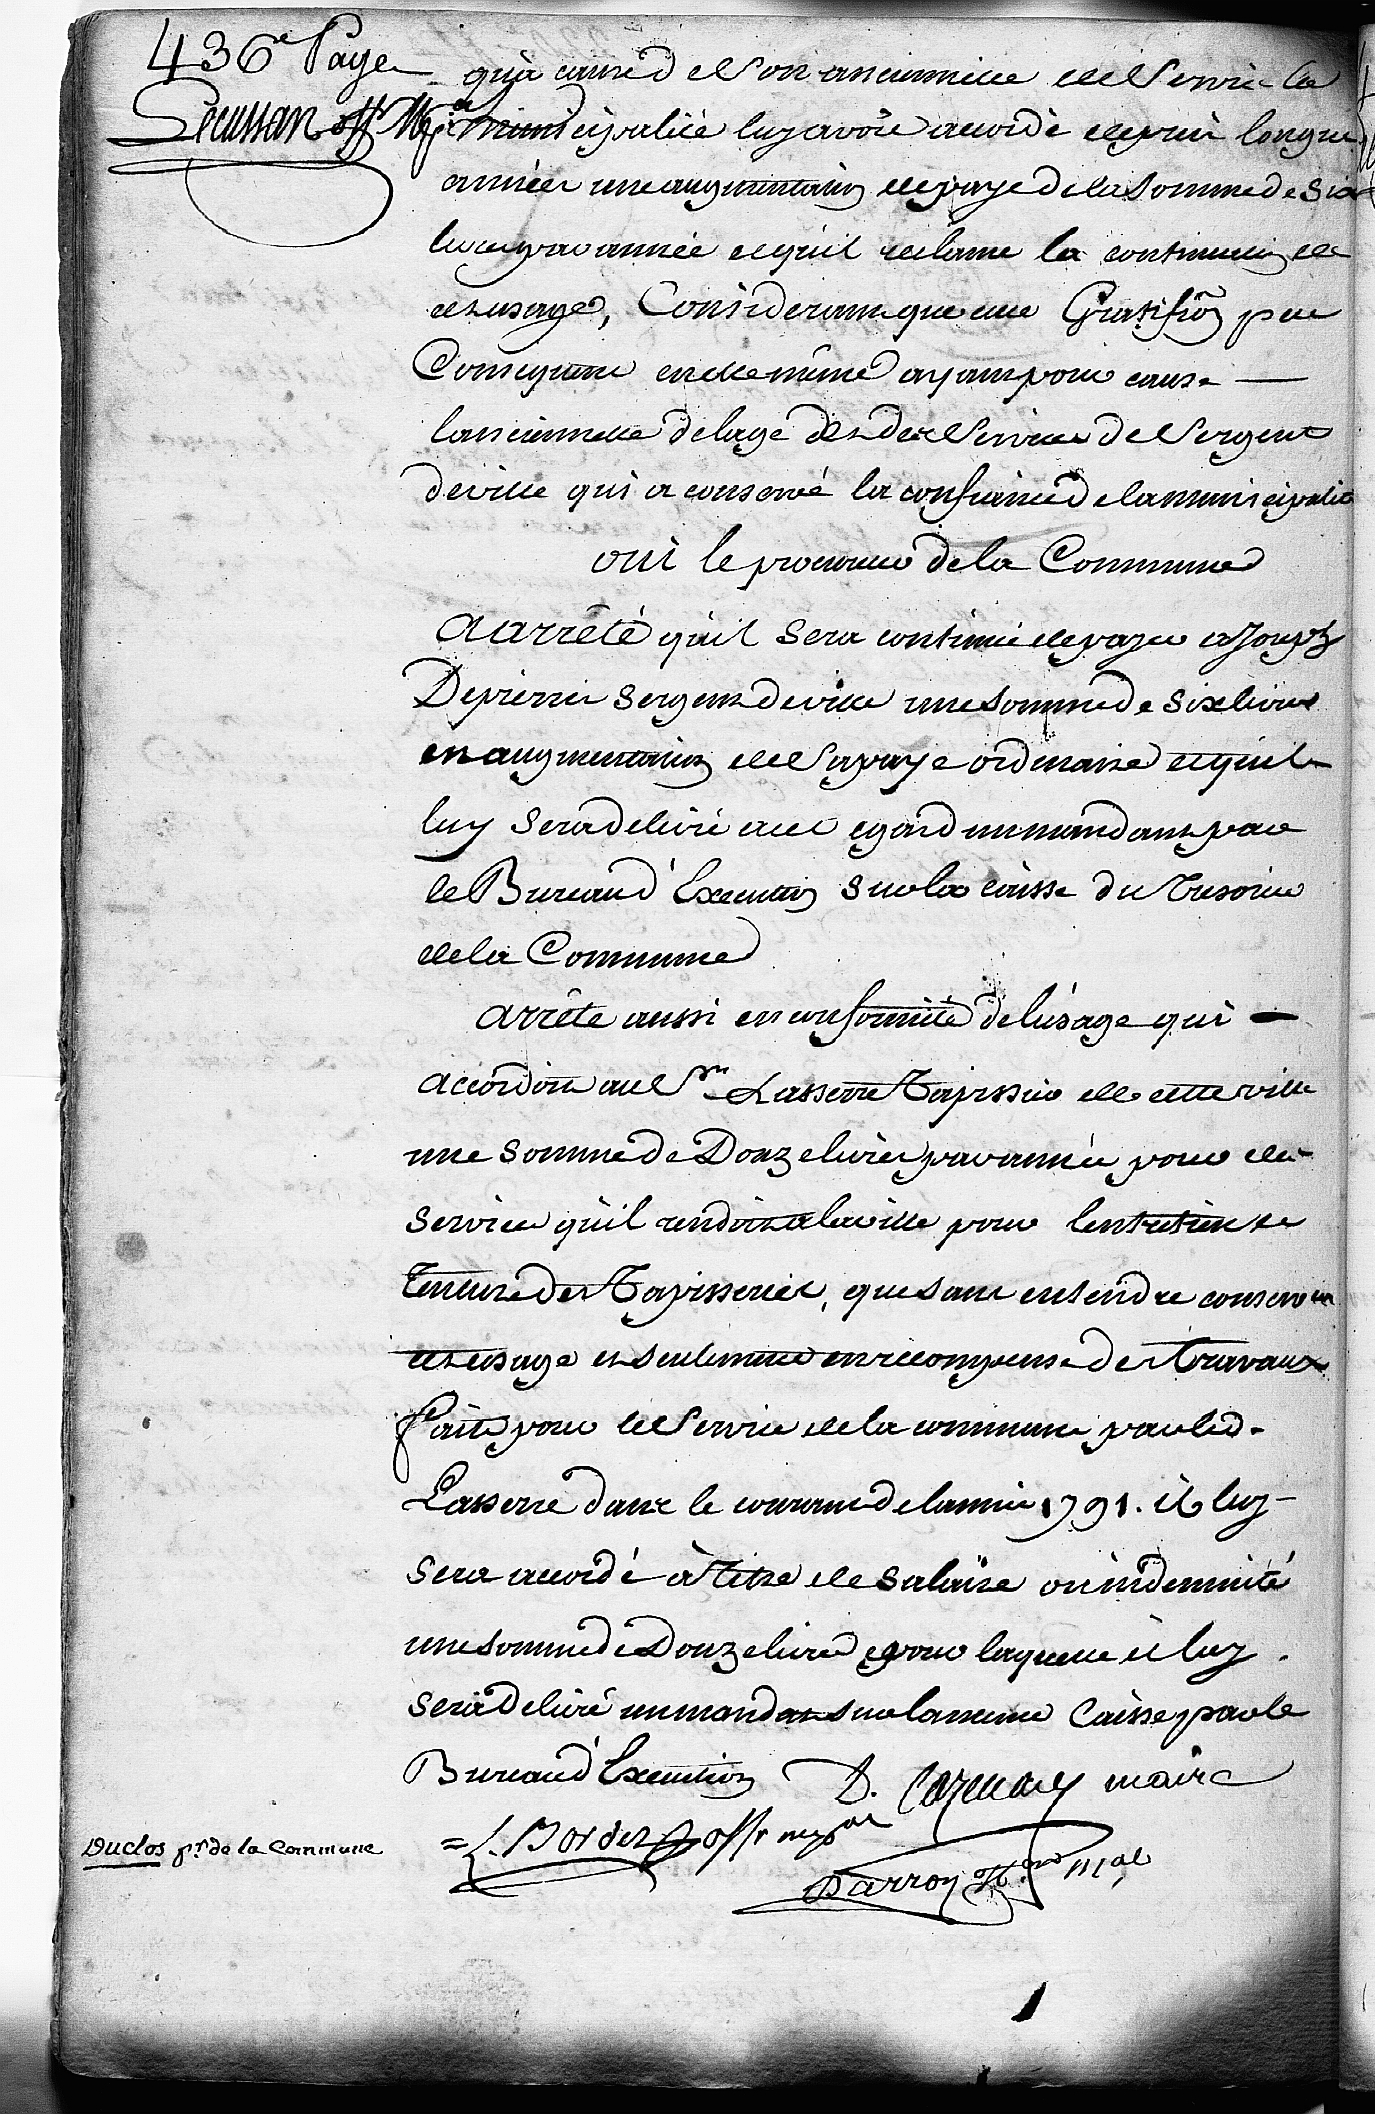 436e Page
Lecussan offr Mpal
qu'a cause de son anciennette de Service la
municipalité luy avoit accordé depuis longues
années une augmentation de paye de la Somme de Six
livres par année et qu'il reclame la continuation de
cet usage, Considerant que cette Gratifion peu
Consequente en elle même ayant pour cause —
l'anciennette de lage et des Services de Sergent
de ville qui a conservé la confiance de la municipalité
oui le procureur de la Commune
a arrêté qu'il Sera continué de payer a Joseph
Depierris Sergent de ville une somme de Six livres
en augmentation de Sa paye ordinaire et qu'il
luy Sera delivré a cet egard un mandant par
le Bureau d'Execution Sur la caisse du tresorier
de la Commune
arrête aussi en conformité de l'usage qui —
accordoit au Sr Lasserre Tapissier de cette ville
une Somme de Douze livres par année pour les
Services qu'il rendoit a la ville pour lentretien et
tenture des Tapisseries, que sans entendre conserver
cet usage et seulement en recompense des travaux
faits pour le Service de la commune par led.
Lasserre dans le courant de lannée 1791. il luy
Sera accordé à titre de Salaire ou indemnité
une somme de Douze livres pour laquelle il luy
Sera delivré un mandat sur la meme Caisse par le
Bureau d'Execution D. Cazenave maire
= L. Bordes offr mpal
Duclos pr. de la Commune
Darroy off. mal